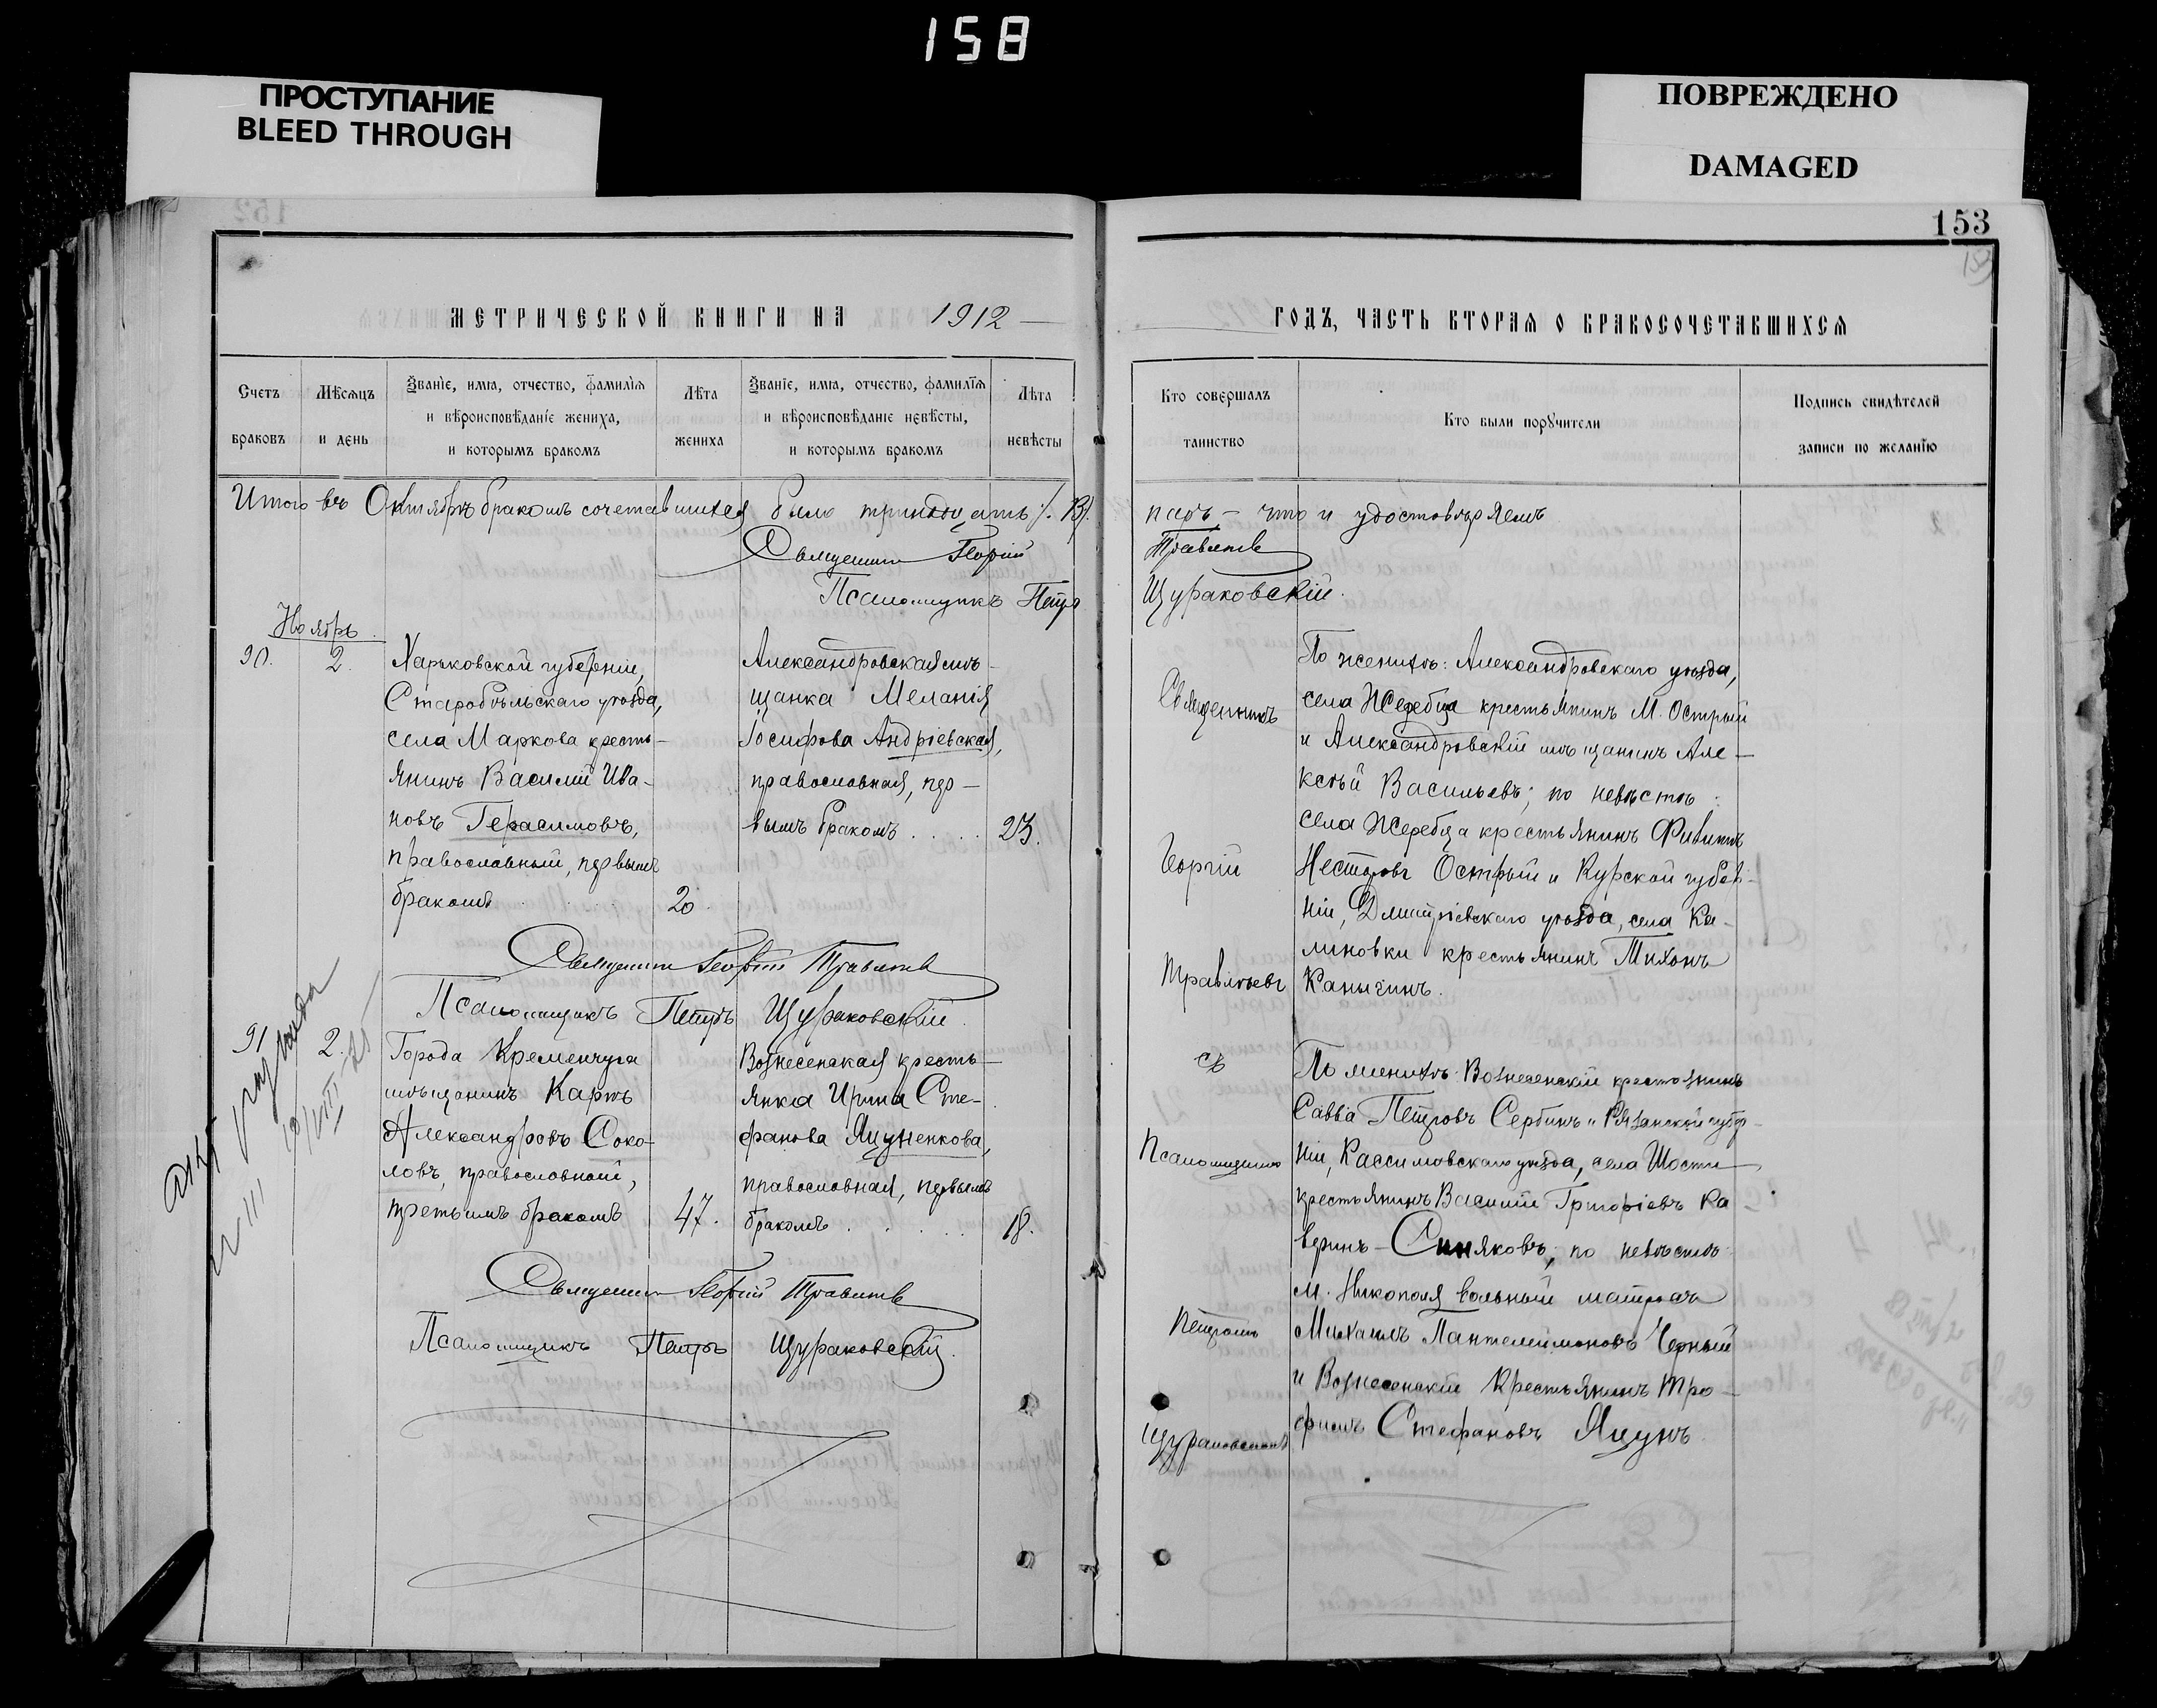 158
ПРОСТУПАНИЕ
BLEED THROUGH
ПОВРЕЖДЕНО
DAMAGED
153
МЕТРИЧЕСКОЙ КНИГИ НА 1912
ГОДЪ, ЧАСТЬ ВТОРАЯ О БРАКОСОЧЕТАВШИХСЯ
Счетъ
браковъ
Мѣсяцъ
и день
Званіе, имя, отчество, фамилія
и вѣроисповѣданіе жениха,
и которымъ бракомъ
Лѣта
жениха
Званіе, имя, отчество, фамилія
и вѣроисповѣданіе невѣсты,
и которымъ бракомъ
Лѣта
невѣсты
Кто совершалъ
таинство
Кто были поручители
Подпись свидѣтелей
записи по желанію
Итого въ Октябрѣ бракомъ сочетавшихся было тринадцать /.13/.
паръ – что и удостовѣряемъ
Священникъ Георгій
Псаломщикъ Петръ
Щураковскій.
Ноябрь
90. 2.
Харьковской губерніи,
Старобѣльскаго уѣзда,
села Маркова кресть-
янинъ Василій Ива-
новъ Герасимовъ,
православный, первымъ
бракомъ
20.
Александровская мѣ-
щанка Меланія
Іосифова Андріевская,
православная, пер-
вымъ бракомъ . . . . 23.
Священникъ
Георгій
По женихѣ: Александровскаго уѣзда,
села Жеребца крестьянинъ М. Острый
и Александровскій мѣщанинъ Але-
ксѣй Васильевъ; по невѣстѣ:
села Жеребца крестьянинъ
Несторовъ Острый и Курской губер-
ніи, Дмитріевскаго уѣзда, села Ка-
линовки крестьянинъ Тихонъ
Каныгинъ.
Священникъ Георгій
Псаломщикъ Петръ Щураковскій.
91 2.
Города Кременчуга
мѣщанинъ Карпъ
Александровъ Соко-
ловъ, православный,
третьимъ бракомъ 47.
Вознесенская кресть-
янка Ирина Сте-
фанова Яцуненкова,
православная, первымъ
бракомъ . . . . 18.
съ
Псаломщикомъ
Петромъ
Щураковскимъ
По женихѣ: Вознесенскій крестьянинъ
Савва Петровъ Сербинъ и Рязанской губер-
ніи, Кассимовскаго уѣзда, села Шости
крестьянинъ Василій Григоріевъ Ка
веринъ – Синяковъ; по невѣстѣ
м. Никополя вольный матросъ
Михаилъ Пантелеимоновъ Черный
и Вознесенскій крестьянинъ Тро-
фимъ Стефановъ Яцунъ.
Священникъ Георгій
Псаломщикъ Петръ Щураковскій.